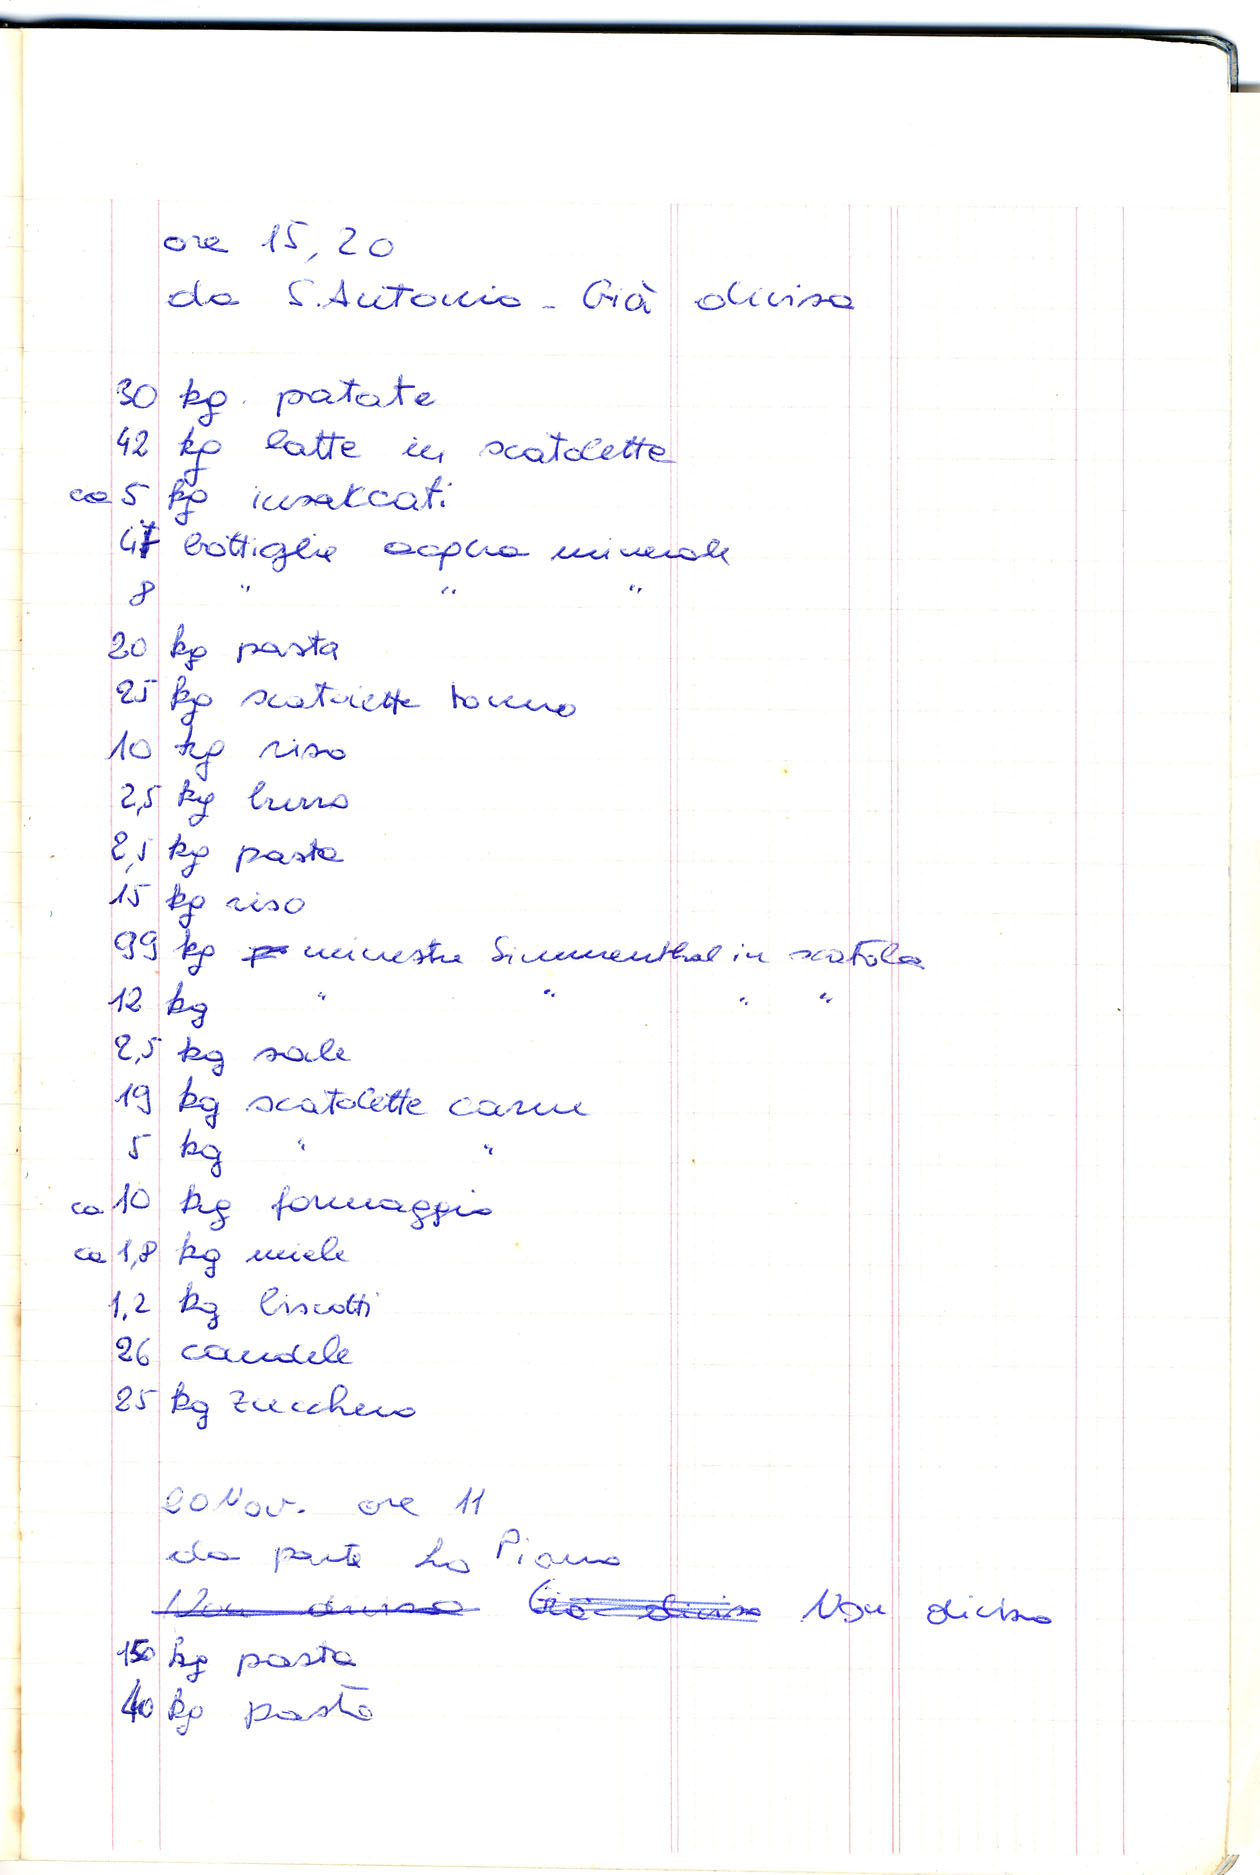 ore 15,20
da S. Antonio - Già divisa
30 kg. patate
42 kg latte in scatolette
ca 5 kg insaccati
47 bottiglie acqua minerale
8 " " "
20 kg pasta
25 kg scatolette tonno
10 kg riso
2,5 kg burro
2,5 kg pasta
15 kg riso
99 kg minestre Simmenthal in scatola
12 kg " " " "
2,5 kg sale
19 kg scatolette carne
5 kg " "
ca 10 kg formaggio
ca 1,8 kg miele
1,2 kg biscotti
26 candele
25 kg zucchero
20 Nov. ore 11
da parte Lo Piano
Non divisa Già divisa Non divisa
150 kg pasta
40 kg pasta